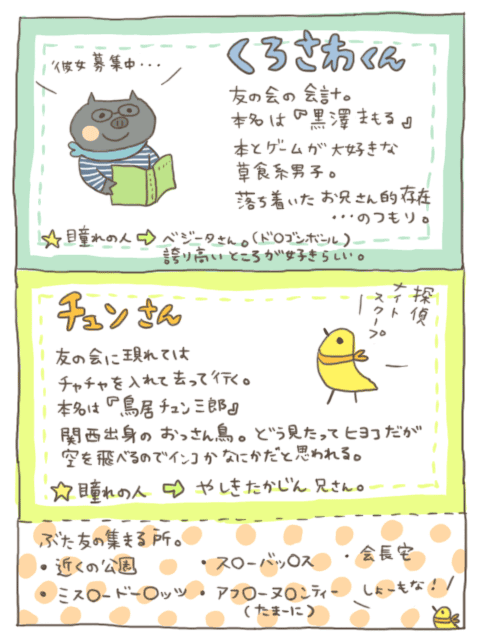 くろさわくん
彼女募集中・・・
友の会の会計。
本名は『黒澤まもる』
本とゲームが大好きな
草食系男子。
落ち着いたお兄さん的存在
・・・のつもり。
憧れの人 ⇨ ベジータさん。(ド〇ゴンボール)
誇り高いところが好きらしい。
チュンさん
探偵
ナイト
スクープ
友の会に現れては
チャチャを入れて去って行く。
本名は『鳥居チュン三郎』
関西出身のおっさん鳥。どう見たってヒヨコだが
空を飛べるのでインコかなにかだと思われる。
憧れの人 ⇨ やしきたかじん兄さん。
ぶた友の集まる所。
・近くの公園
・ス〇ーバッ〇ス
・会長宅
・ミス〇ードー〇ッツ
・アフ〇ーヌ〇ンティー
(たまーに)
しょーもな!!